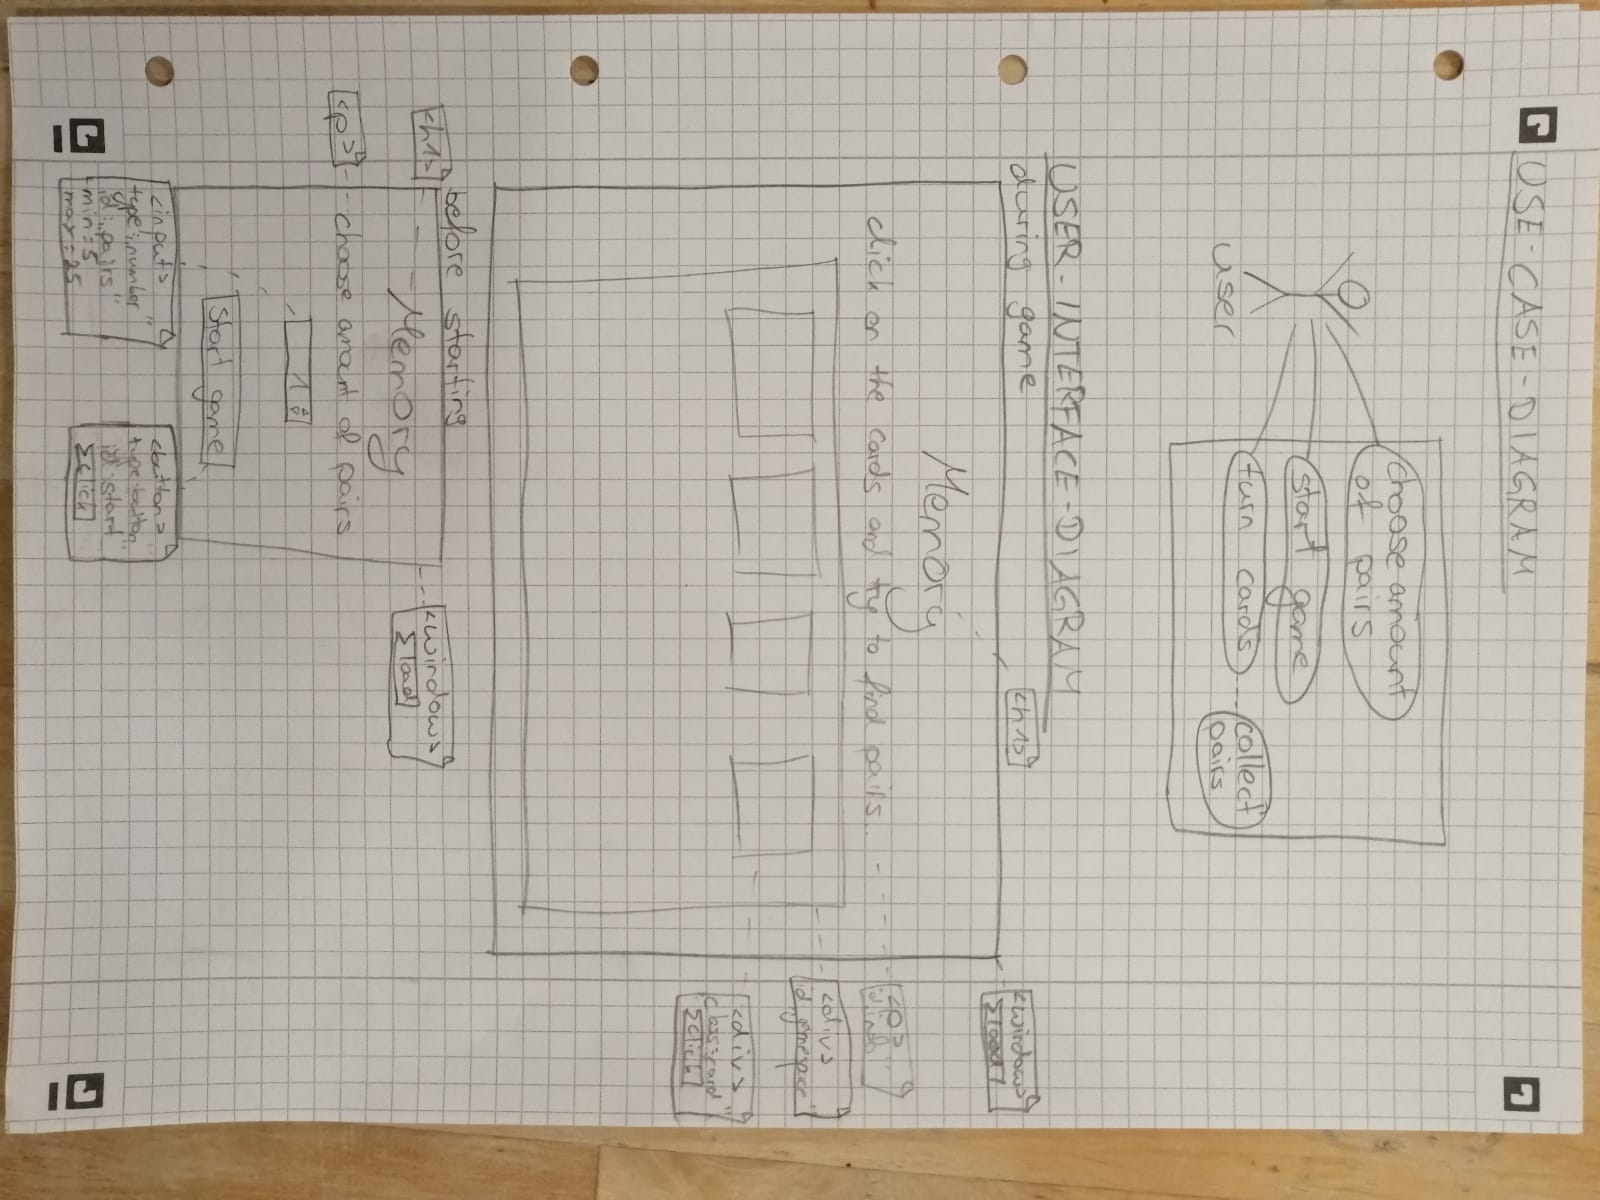 USE-CASE-DIAGRAM
user
choose amount
of pairs
start game
turn cards
collect
pairs
USER-INTERFACE-DIAGRAM
during game
<h1>
<window>
Σload
Memory
click on the cards and try to find pairs...
<p>
<div>
id:
<div>
class:card"
Σclick
before starting
<h1>
Memory
<window>
Σload
<p>
choose amount of pairs
1
Start game
<input>
type:„number"
id:„pairs"
min:5
max:25
<button>
type:button"
id:start"
Σclick